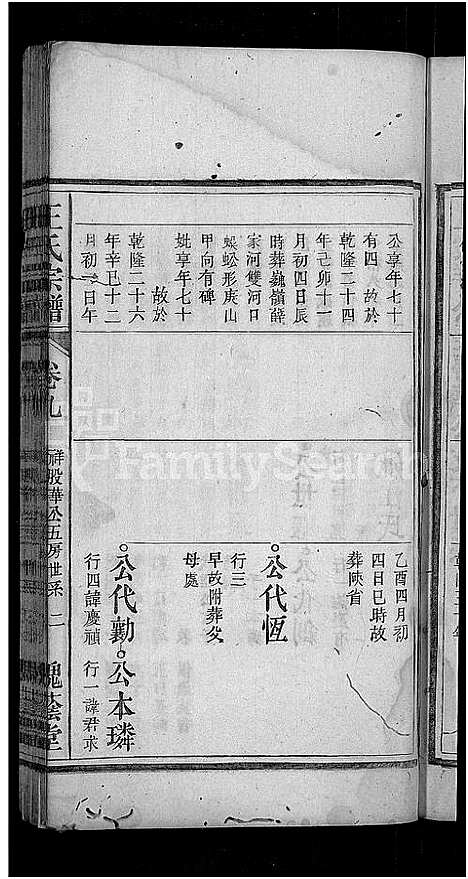 公享年七十
有四　故於
乾隆二十四
年己卯十一
月初四日辰
時葬巍嶺薛
家河雙河口
蜈蚣形庚山
甲向有碑
妣享年七十
故於
乾隆二十六
年辛巳十二
月初　日午
乙酉四月初
四日巳時故
葬陝省
公代恆
行三
早故附葬父
母處
公代勳
行四諱慶禎
公本璘
行一諱君求
王氏宗譜
卷九
祥股華公五房世系
二
槐蔭堂
FamilySearch